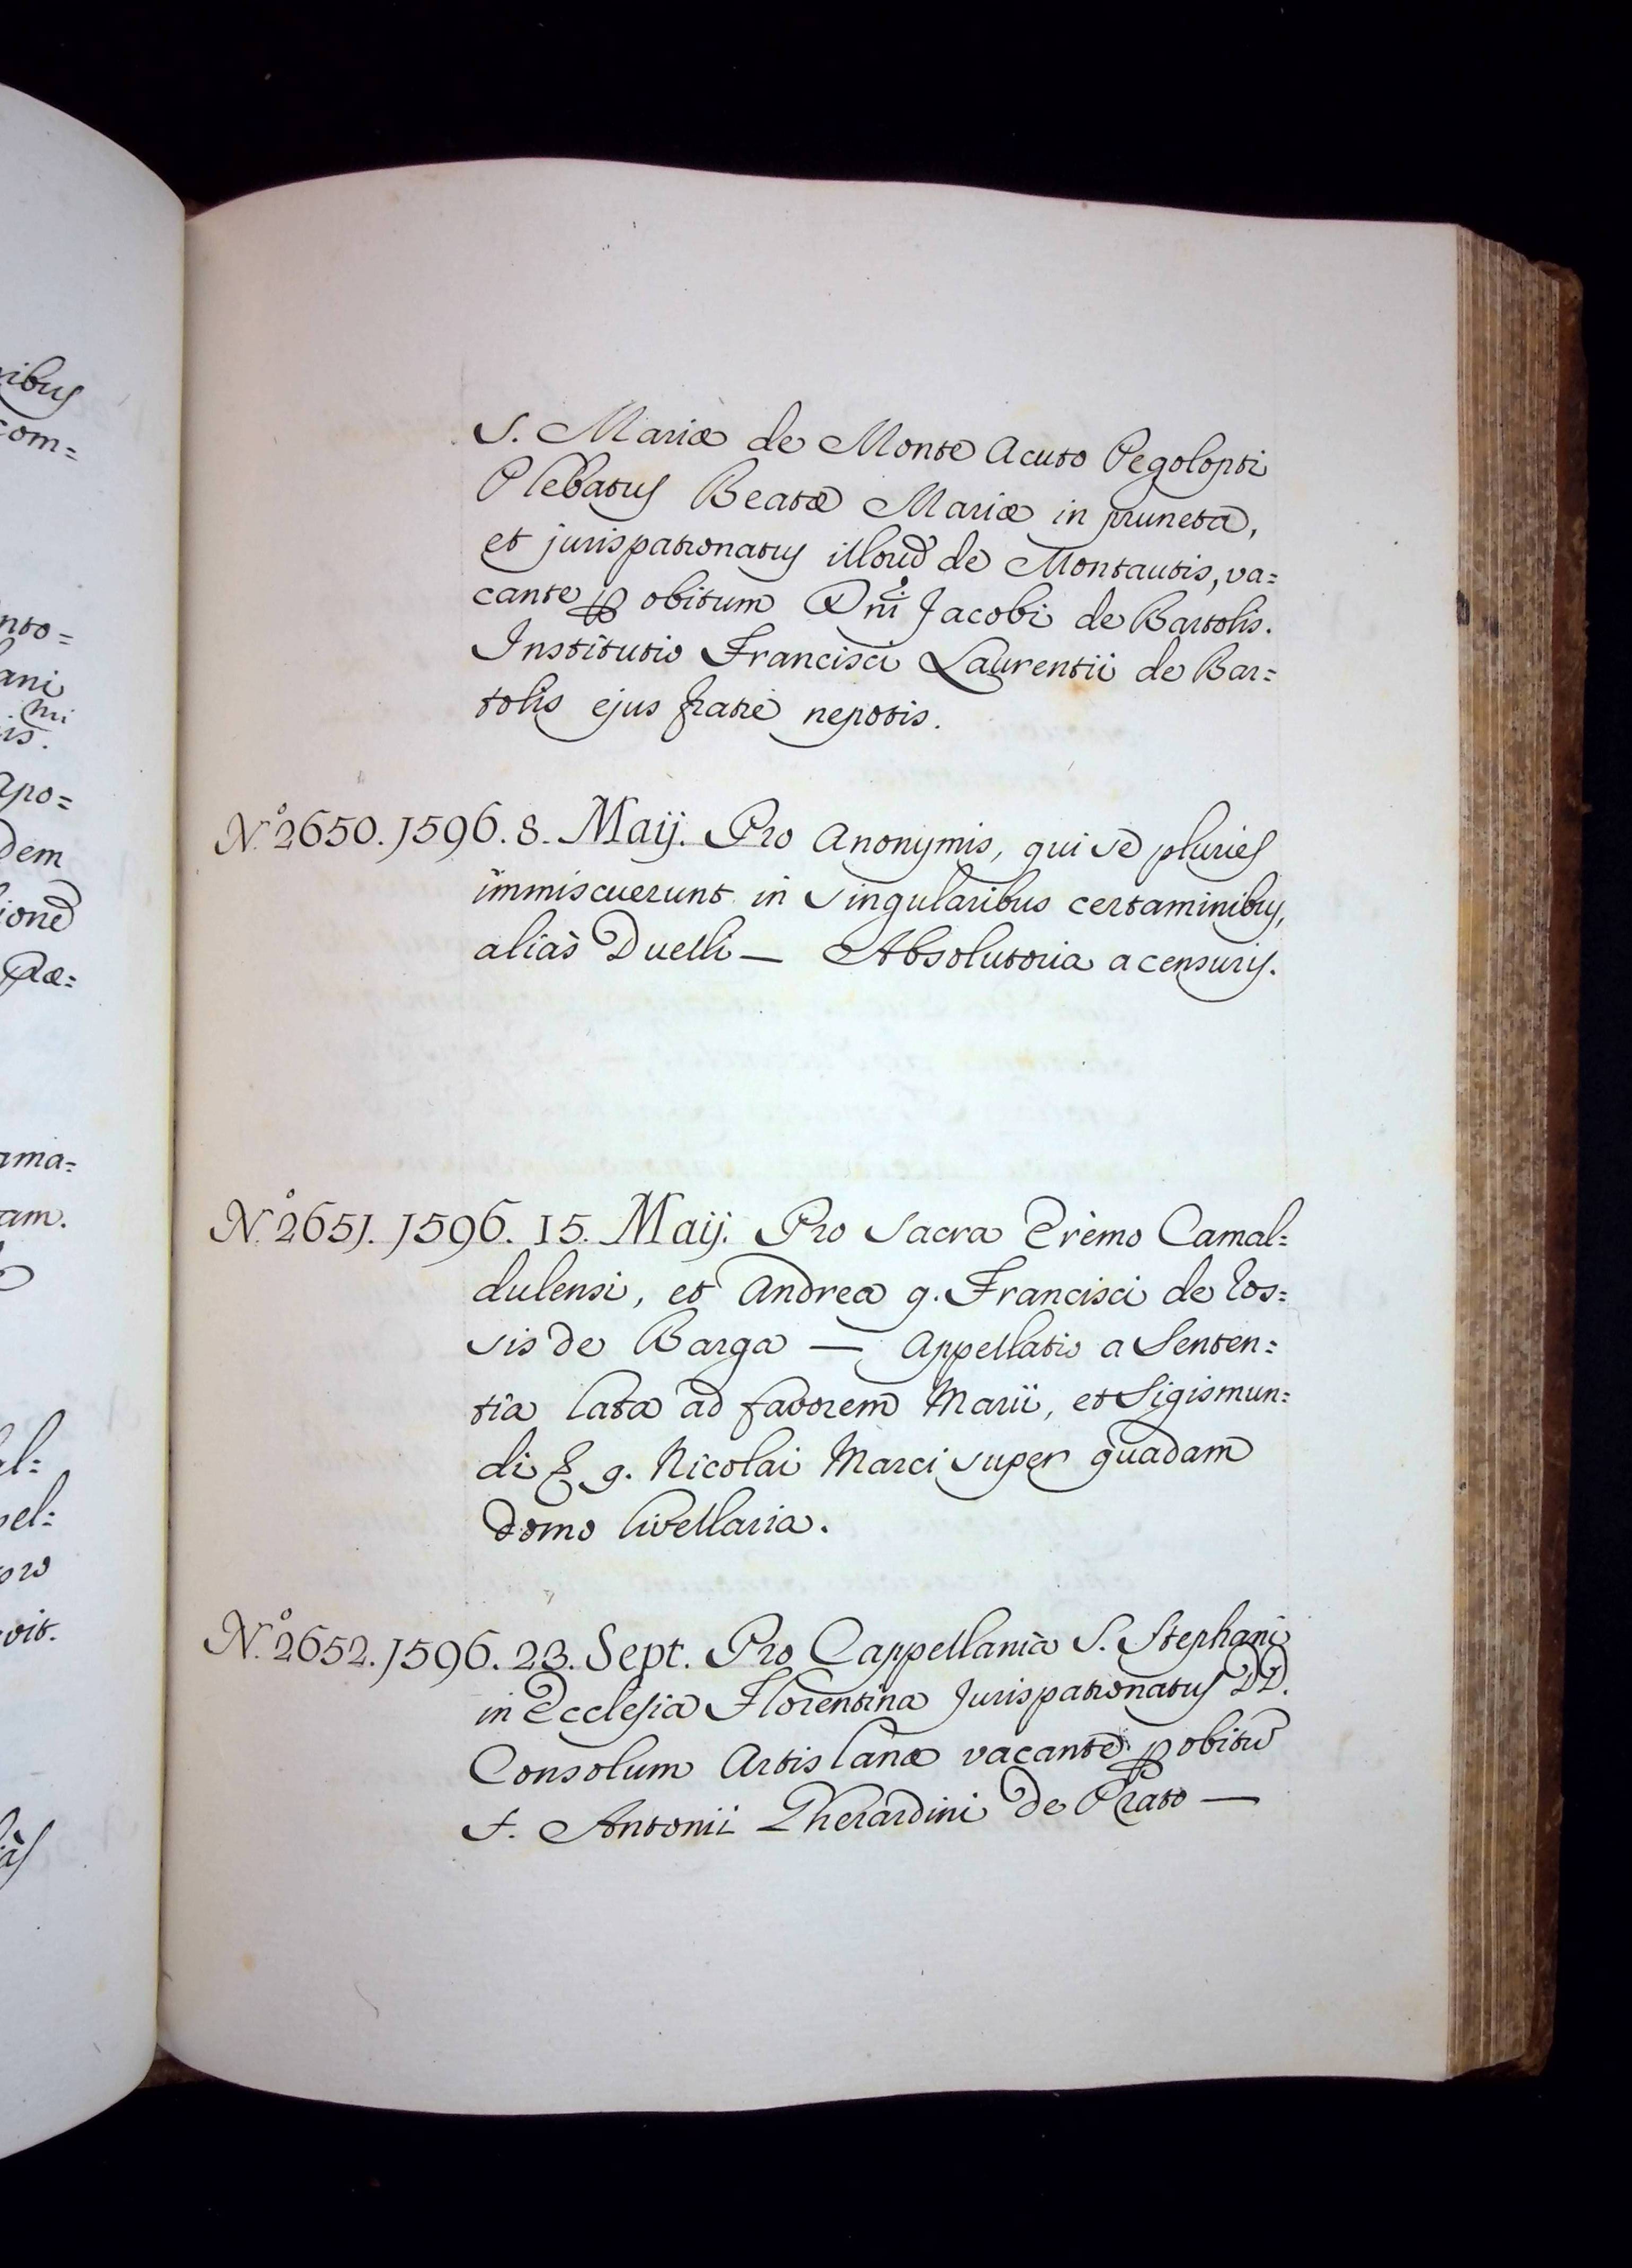 ibus
com=
nto=
ani
mi
is.
apo=
dem
ione
Præ=
ama=
am.
al=
pel=
oro
vit.
S. Mariæ de Monte Acuto Pegolopti
Plebatus Beatæ Mariæ in pruneta,
et jurispatronatus illorū de Montautis, va=
cante ꝑ obitum Dnī Jacobi de Bartolis.
Institutio Francisci Laurentii de Bar=
tolis ejus fratrē nepotis.
N.º 2650. 1596. 8. Maij. Pro Anonymis, qui se pluries
immiscuerunt in singularibus certaminibus,
aliàs Duelli — Absolutoria a censuris.
N.º 2651. 1596. 15. Maij. Pro Sacra Eremo Camal=
dulensi, et Andrea q. Francisci de
de Barga — Appellatio a Senten=
tia lata ad favorem Marii, et Sigismun=
di q. Nicolai Marci super quadam
domo livellaria.
N.º 2652. 1596. 23. Sept. Pro Cappellania S. Stephani
in Ecclesia Florentina Jurispatronatus DD.
Consolum Artis lanæ vacante ꝑ obitū
Antonii Gherardini de Prato —